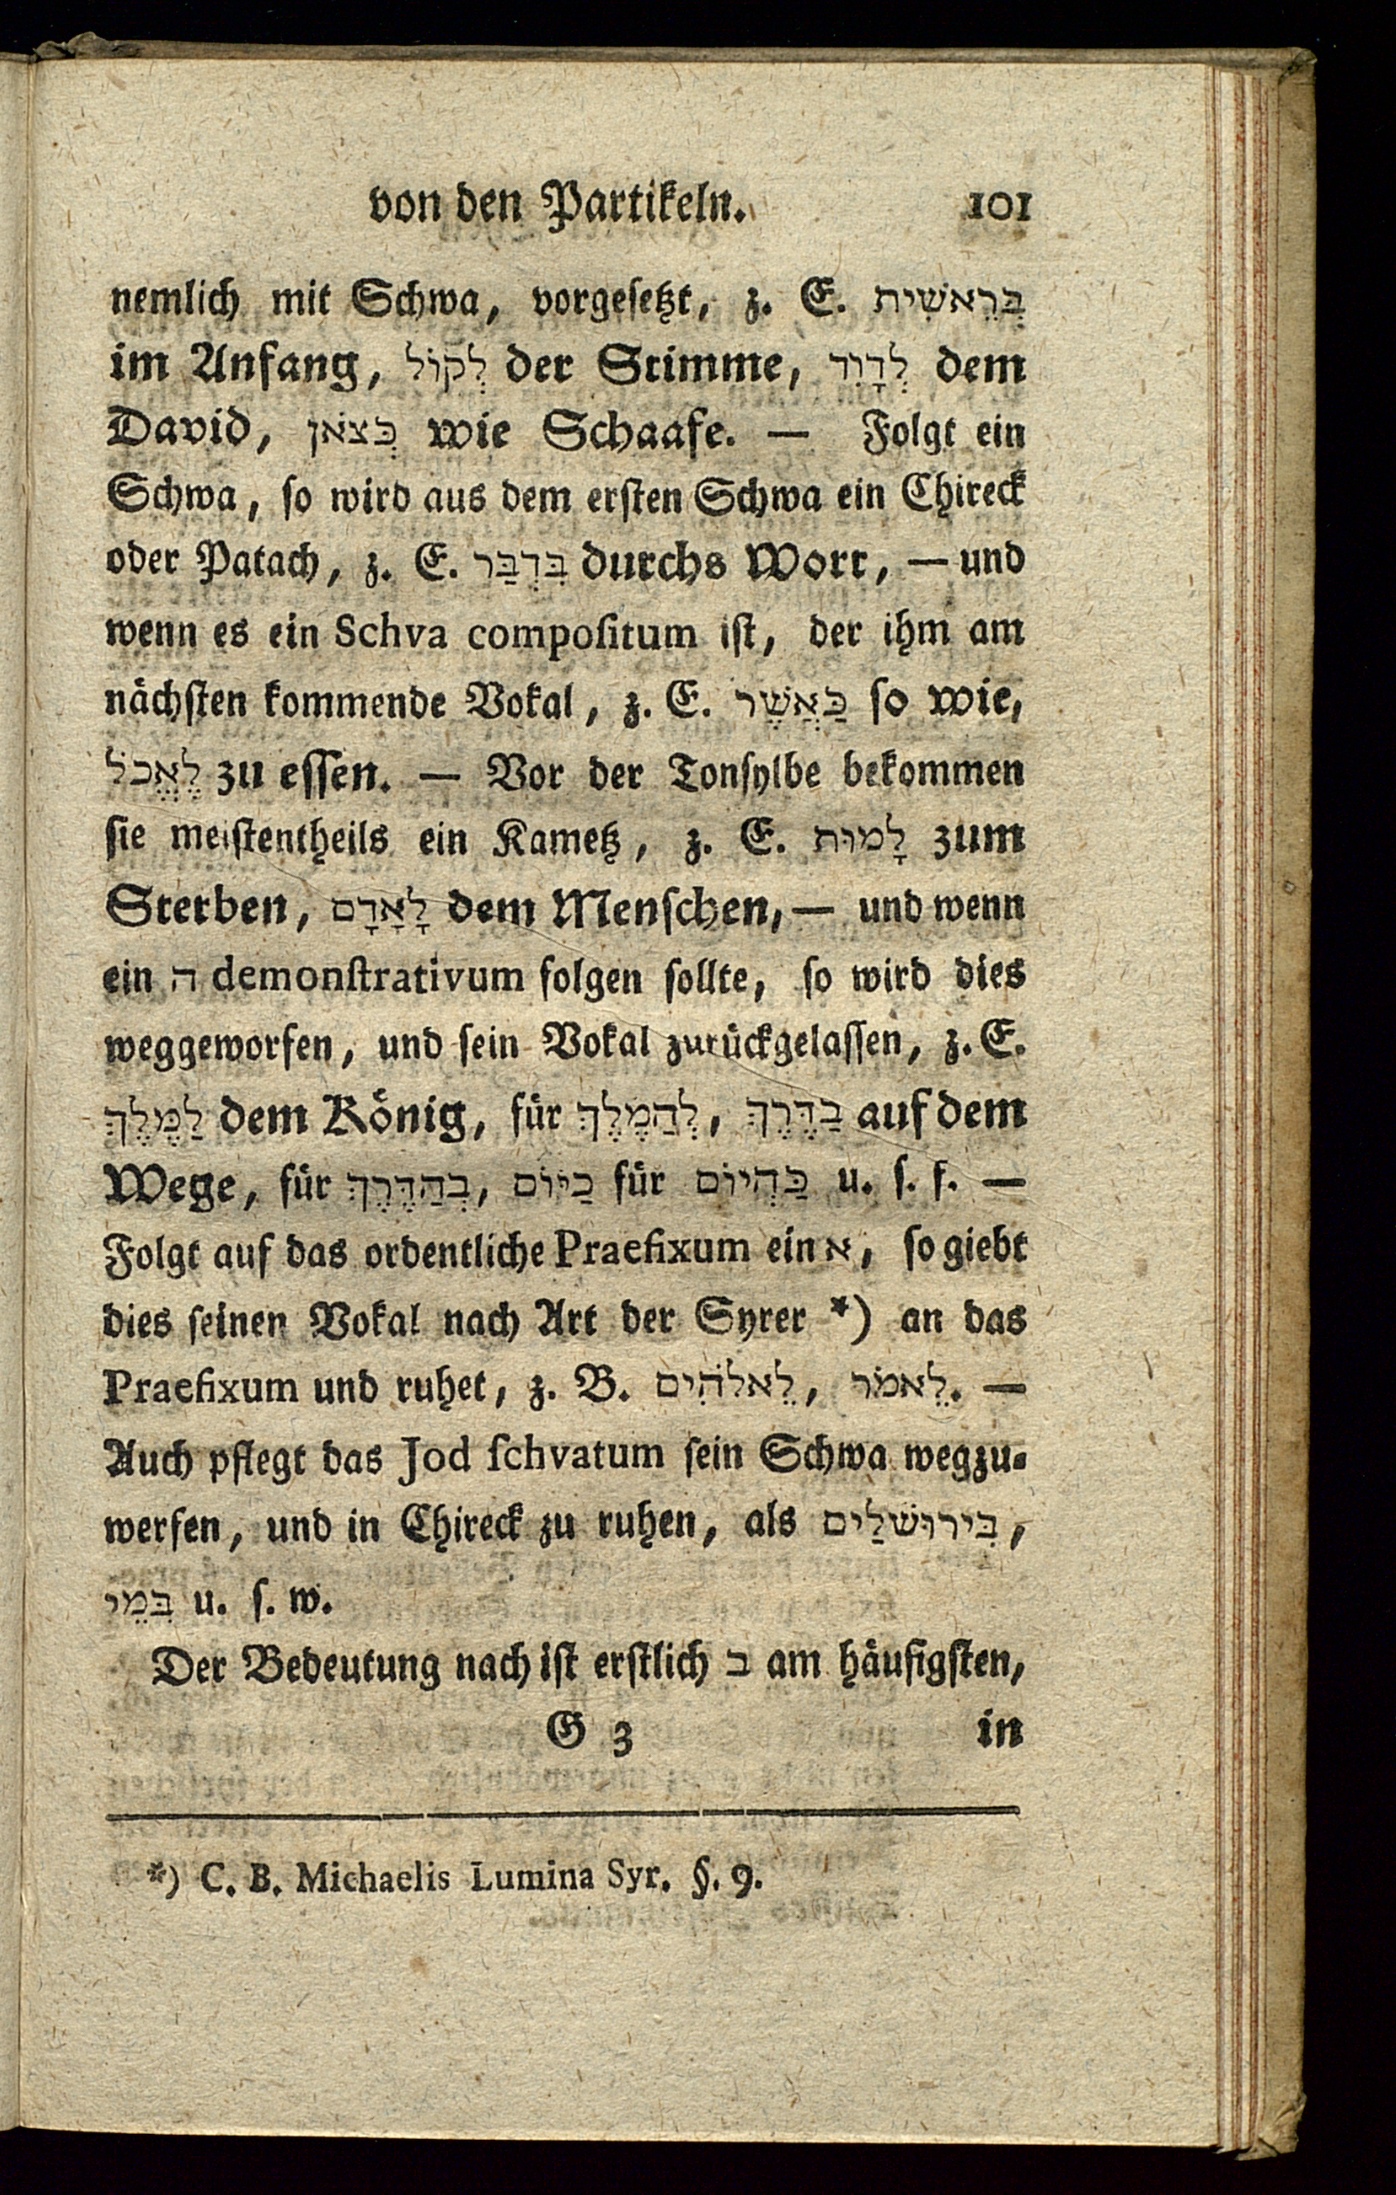 von den Partikeln. 101
nemlich mit Schwa, vorgesetzt, z. E. בְּרֵאשִׁית
im Anfang, לְקוֹל der Stimme, לְדָוִד dem
David, כְּצֹאן wie Schaafe. — Folgt ein
Schwa, so wird aus dem ersten Schwa ein Chireck
oder Patach, z. E. בִּדְבַּר durchs Wort, — und
wenn es ein Schva compositum ist, der ihm am
nächsten kommende Vokal, z. E. כַּאֲשֶׁר so wie,
לֶאֱכֹל zu essen. — Vor der Tonsylbe bekommen
sie meistentheils ein Kametz, z. E. לָמוּת zum
Sterben, לָאָדָם dem Menschen, — und wenn
ein ה demonstrativum folgen sollte, so wird dies
weggeworfen, und sein Vokal zurückgelassen, z. E.
לַמֶּלֶךְ dem König, für לְהַמֶּלֶךְ, בַּדֶּרֶךְ auf dem
Wege, für בְּהַדֶּרֶךְ, כַּיּוֹם für כַּהְיוֹם u. s. f. —
Folgt auf das ordentliche Praefixum ein א, so giebt
dies seinen Vokal nach Art der Syrer *) an das
Praefixum und ruhet, z. B. לֵאלֹהִים, לֵאמֹר. —
Auch pflegt das Jod schvatum sein Schwa wegzu-
werfen, und in Chireck zu ruhen, als בִּירוּשׁלַים,
בִּמֵי u. s. w.
Der Bedeutung nach ist erstlich ב am häufigsten,
G 3 in
*) C. B. Michaelis Lumina Syr. §. 9.